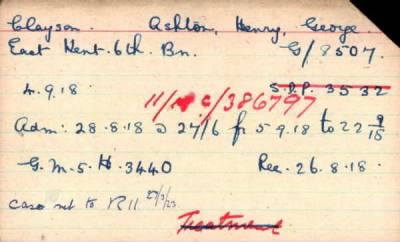 Clayson. Ashton, Henry, George.
East Kent. 6th. Bn. G/8507.
4.9.18. S.D.P. 3532
11/M C/386797
Adm: 28.8.18 D 27/6 fr 5 9.18 to 22 9/18
G.M.5.H.3440 Rec. 26.8.18.
Case ret to R11 27/3/23
Treatment